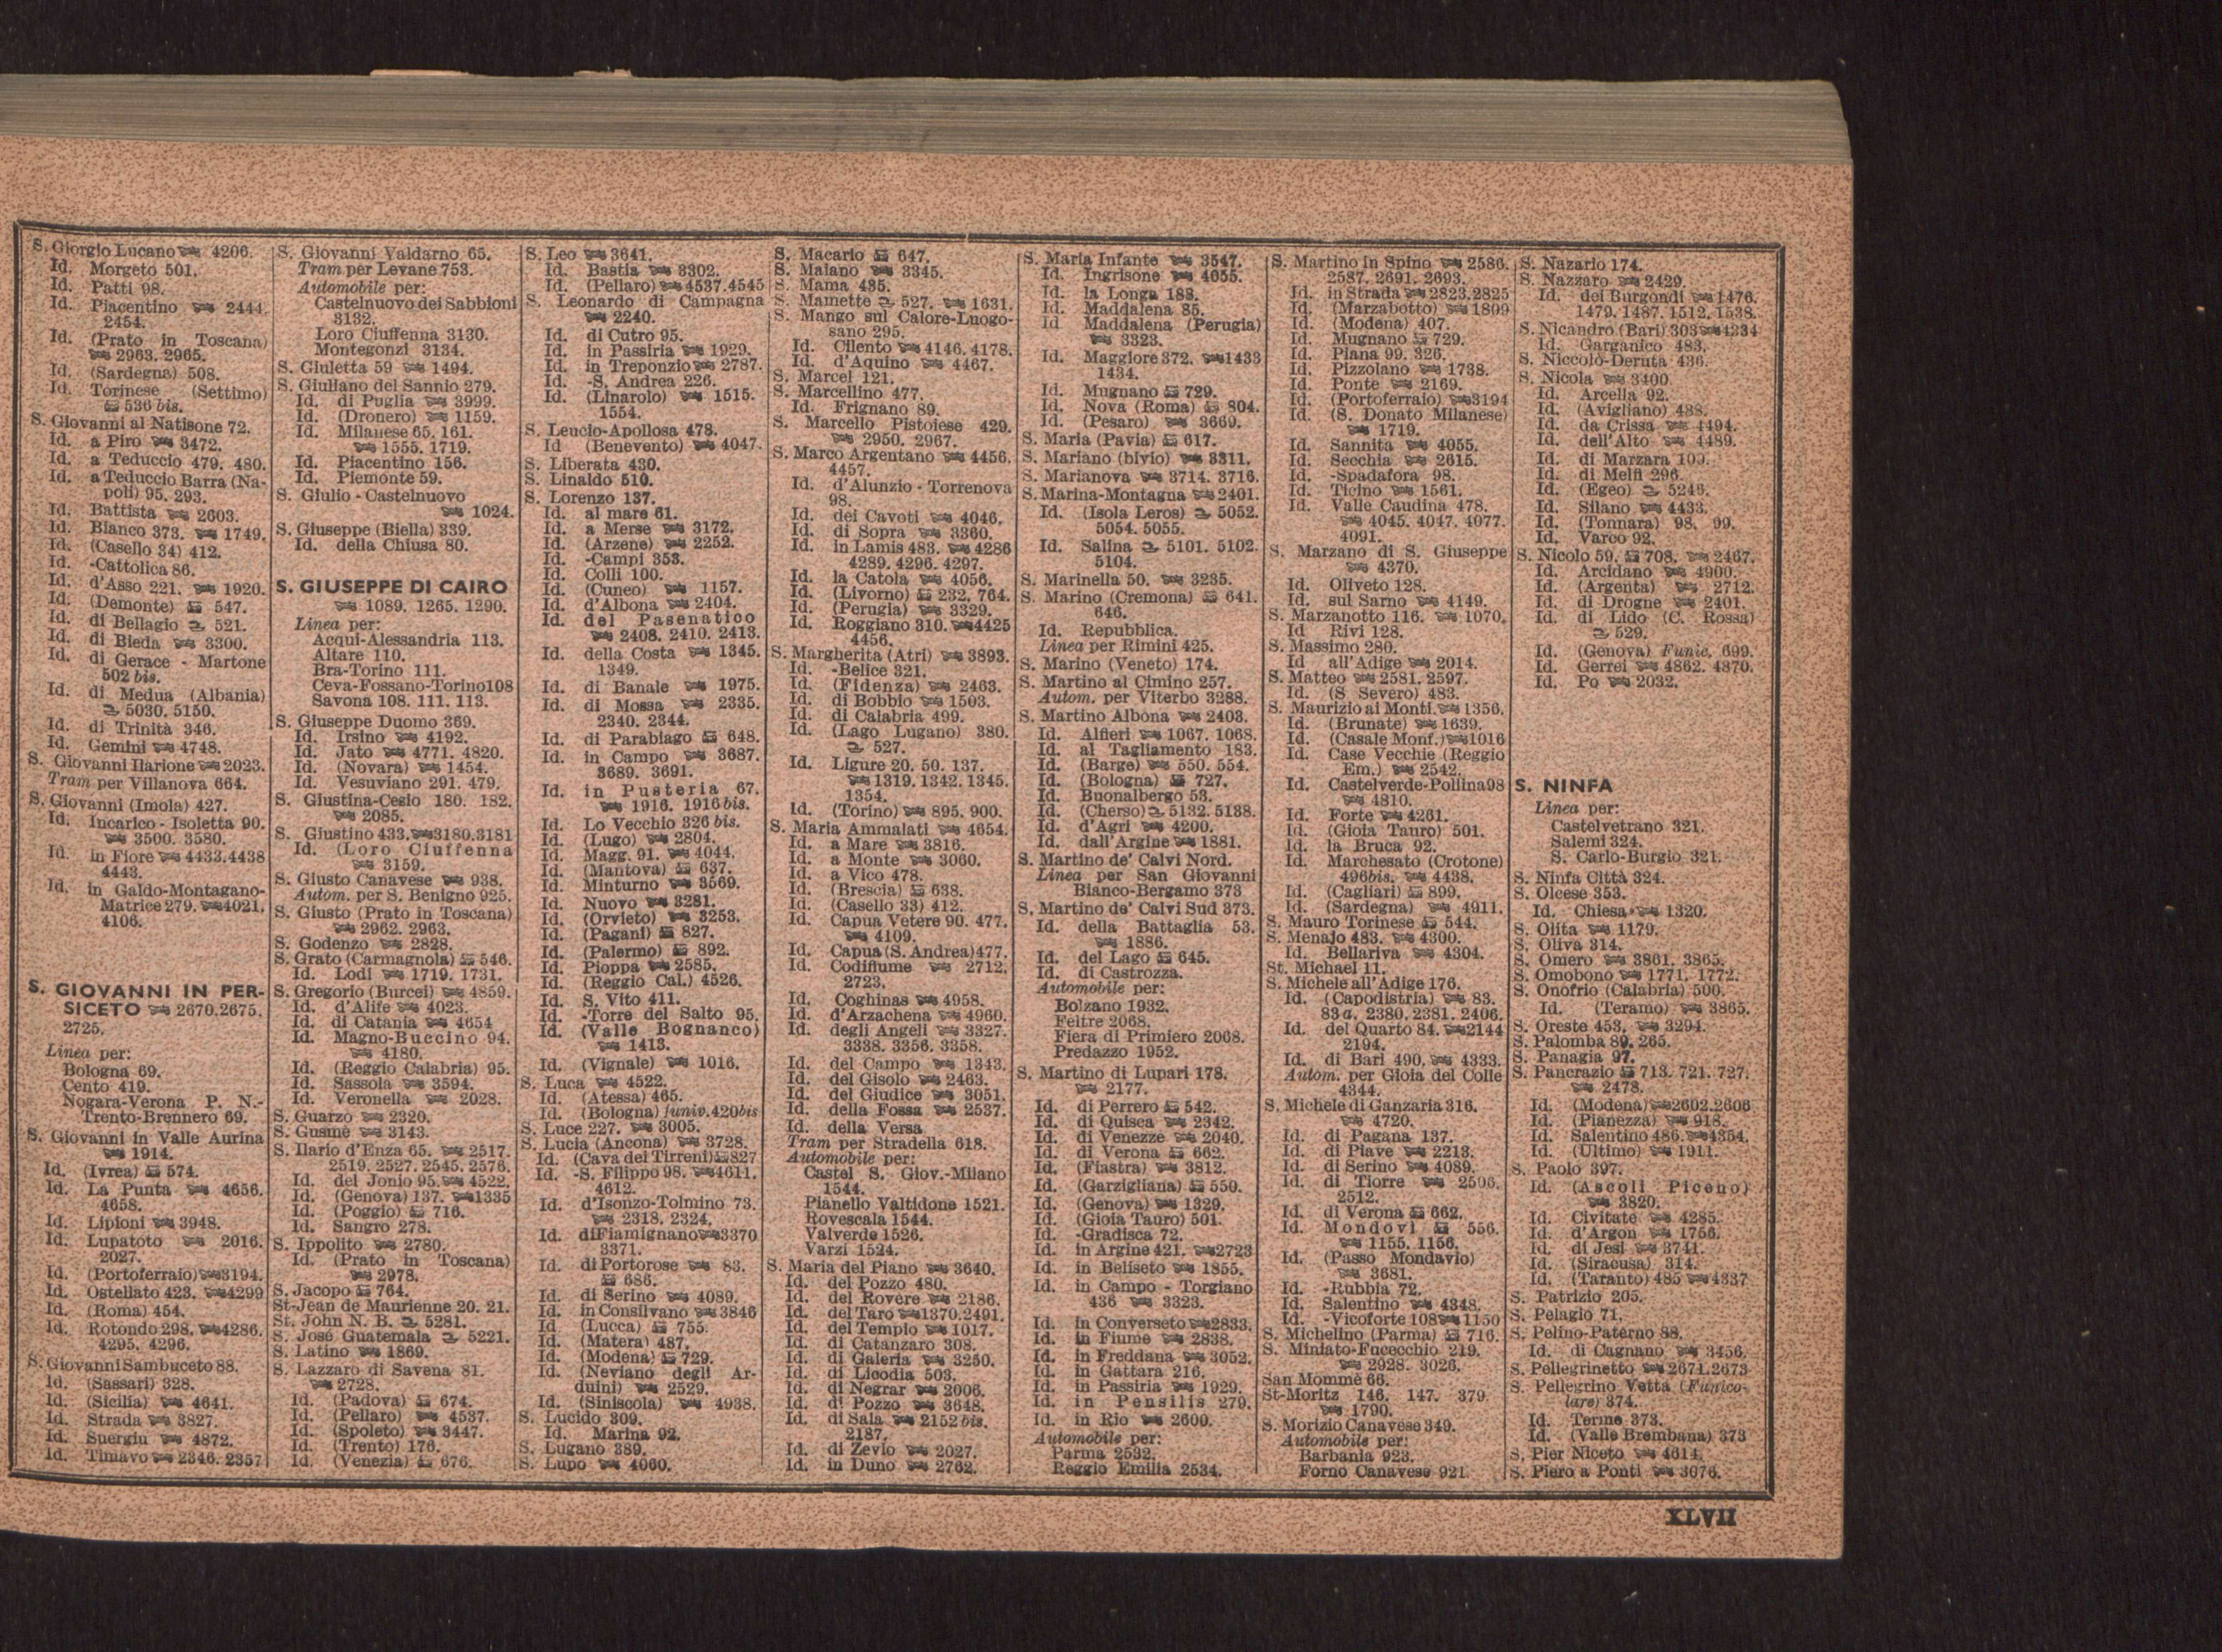 S. Giorgio Lucano 4206.
Id. Morgeto 501.
Id. Patti 98.
Id. Piacentino 2444.
2454.
Id. (Prato in Toscana)
2963. 2965.
Id. (Sardegna) 508.
Id. Torinese (Settimo)
536 bis.
S. Giovanni al Natisone 72.
Id. a Piro 3472.
Id. a Teduccio 479. 480.
Id. a Teduccio Barra (Na-
poli) 95. 293.
Id. Battista 2603.
Id. Bianco 373. 1749.
Id. (Casello 34) 412.
Id. -Cattolica 86.
Id. d'Asso 221. 1920.
Id. (Demonte) 547.
Id. di Bellagio 521.
Id. di Bieda 3300.
Id. di Gerace - Martone
502 bis.
Id. di Medua (Albania)
5030. 5150.
Id. di Trinità 346.
Id. Gemini 4748.
S. Giovanni Ilarione 2023.
Tram per Villanova 664.
S. Giovanni (Imola) 427.
Id. Incarico - Isoletta 90.
3500. 3580.
Id. in Fiore 4433.4438
4443.
Id. in Galdo-Montagano-
Matrice 279. 4021.
4106.
S. GIOVANNI IN PER-
SICETO 2670.2675.
2725.
Linea per:
Bologna 69.
Cento 419.
Nogara-Verona P. N.-
Trento-Brennero 69.
S. Giovanni in Valle Aurina
1914.
Id. (Ivrea) 574.
Id. La Punta 4656.
4658.
Id. Lipioni 3948.
Id. Lupatoto 2016.
2027.
Id. (Portoferraio) 3194.
Id. Ostellato 423. 4299
Id. (Roma) 454.
Id. Rotondo 298. 4286.
4295. 4296.
S. Giovanni Sambuceto 88.
Id. (Sassari) 328.
Id. (Sicilia) 4641.
Id. Strada 3827.
Id. Suergiu 4872.
Id. Timavo 2346. 2357
S. Giovanni Valdarno 65.
Tram per Levane 753.
Automobile per:
Castelnuovo dei Sabbioni
3132.
Loro Ciuffenna 3130.
Montegonzi 3134.
S. Giuletta 59 1494.
S. Giuliano del Sannio 279.
Id. di Puglia 3999.
Id. (Dronero) 1159.
Id. Milanese 65. 161.
1555. 1719.
Id. Piacentino 156.
Id. Piemonte 59.
S. Giulio - Castelnuovo
1024.
S. Giuseppe (Biella) 339.
Id. della Chiusa 80.
S. GIUSEPPE DI CAIRO
1089. 1265. 1290.
Linea per:
Acqui-Alessandria 113.
Altare 110.
Bra-Torino 111.
Ceva-Fossano-Torino 108
Savona 108. 111. 113.
S. Giuseppe Duomo 369.
Id. Irsino 4192.
Id. Jato 4771. 4820.
Id. (Novara) 1454.
Id. Vesuviano 291. 479.
S. Giustina-Cesio 180. 182.
2085.
S. Giustino 433. 3180.3181
Id. (Loro Ciuffenna
3159.
S. Giusto Canavese 938.
Autom. per S. Benigno 925.
S. Giusto (Prato in Toscana)
2962. 2963.
S. Godenzo 2828.
S. Grato (Carmagnola) 546.
Id. Lodi 1719. 1731.
S. Gregorio (Burcei) 4859.
Id. d'Alife 4023.
Id. di Catania 4654
Id. Magno-Buccino 94.
4180.
Id. (Reggio Calabria) 95.
Id. Sassola 3594.
Id. Veronella 2028.
S. Guarzo 2320.
S. Gusmè 3143.
S. Ilario d'Enza 65. 2517.
2519. 2527. 2545. 2576.
Id. del Jonio 95. 4522.
Id. (Genova) 137. 1335
Id. (Poggio) 716.
Id. Sangro 278.
S. Ippolito 2780.
Id. (Prato in Toscana)
2978.
S. Jacopo 764.
St-Jean de Maurienne 20. 21.
St. John N. B. 5281.
S. José Guatemala 5221.
S. Latino 1869.
S. Lazzaro di Savena 81.
2728.
Id. (Padova) 674.
Id. (Pellaro) 4537.
Id. (Spoleto) 3447.
Id. (Trento) 176.
Id. (Venezia) 676.
S. Leo 3641.
Id. Bastia 3302.
Id. (Pellaro) 4537.4545
S. Leonardo di Campagna
2240.
Id. di Cutro 95.
Id. in Passiria 1929.
Id. in Treponzio 2787.
Id. -S. Andrea 226.
Id. (Linarolo) 1515.
1554.
S. Leucio-Apollosa 478.
Id (Benevento) 4047.
S. Liberata 430.
S. Linaldo 510.
S. Lorenzo 137.
Id. al mare 61.
Id. a Merse 3172.
Id. (Arzene) 2252.
Id. -Campi 353.
Id. Colli 100.
Id. (Cuneo) 1157.
Id. d'Albona 2404.
Id. del Pasenatico
2408. 2410. 2413.
Id. della Costa 1345.
1349.
Id. di Banale 1975.
Id. di Mossa 2335.
2340. 2344.
Id. di Parabiago 648.
Id. in Campo 3687.
3689. 3691.
Id. in Pusteria 67.
1916. 1916 bis.
Id. Lo Vecchio 326 bis.
Id. (Lugo) 2804.
Id. Magg. 91. 4044.
Id. (Mantova) 637.
Id. Minturno 3569.
Id. Nuovo 3281.
Id. (Orvieto) 3253.
Id. (Pagani) 827.
Id. (Palermo) 892.
Id. Pioppa 2585.
Id. (Reggio Cal.) 4526.
Id. S. Vito 411.
Id. -Torre del Salto 95.
Id. (Valle Bognanco)
1413.
Id. (Vignale) 1016.
S. Luca 4522.
Id. (Atessa) 465.
Id. (Bologna) funiv. 420 bis
S. Luce 227. 3005.
S. Lucia (Ancona) 3728.
Id. (Cava dei Tirreni) 827
Id. -S. Filippo 98. 4611.
4612.
Id. d'Isonzo-Tolmino 73.
2318. 2324.
Id. di Fiamignano 3370
3371.
Id. di Portorose 83.
686.
Id. di Serino 4089.
Id. in Consilvano 3846
Id. (Lucca) 755.
Id. (Matera) 487.
Id. (Modena) 729.
Id. (Neviano degli Ar-
duini) 2529.
Id. (Siniscola) 4938.
S. Lucido 309.
Id. Marina 92.
S. Lugano 389.
S. Lupo 4060.
S. Macario 647.
S. Maiano 3345.
S. Mama 435.
S. Mamette 527. 1631.
S. Mango sul Calore-Luogo-
sano 295.
Id. Cilento 4146. 4178.
Id. d'Aquino 4467.
S. Marcel 121.
S. Marcellino 477.
Id. Frignano 89.
S. Marcello Pistoiese 429.
2950. 2967.
S. Marco Argentano 4456.
4457.
Id. d'Alunzio - Torrenova
98.
Id. dei Cavoti 4046.
Id. di Sopra 3360.
Id. in Lamis 483. 4286
4289. 4296. 4297.
Id. la Catola 4056.
Id. (Livorno) 232. 764.
Id. (Perugia) 3329.
Id. Roggiano 310. 4425
4456.
S. Margherita (Atri) 3893.
Id. -Belice 321.
Id. (Fidenza) 2463.
Id. di Bobbio 1503.
Id. di Calabria 499.
Id. (Lago Lugano) 380.
527.
Id. Ligure 20. 50. 137.
1319. 1342. 1345.
1354.
Id. (Torino) 895. 900.
S. Maria Ammalati 4654.
Id. a Mare 3816.
Id. a Monte 3060.
Id. a Vico 478.
Id. (Brescia) 638.
Id. (Casello 33) 412.
Id. Capua Vetere 90. 477.
4109.
Id. Capua (S. Andrea) 477.
Id. Codifiume 2712.
2723.
Id. Coghinas 4958.
Id. d'Arzachena 4960.
Id. degli Angeli 3327.
3338. 3356. 3358.
Id. del Campo 1343.
Id. del Gisolo 2463.
Id. del Giudice 3051.
Id. della Fossa 2537.
Id. della Versa
Tram per Stradella 618.
Automobile per:
Castel S. Giov.-Milano
1544.
Pianello Valtidone 1521.
Rovescala 1544.
Valverde 1526.
Varzi 1524.
S. Maria del Piano 3640.
Id. del Pozzo 480.
Id. del Rovere 2186.
Id. del Taro 1370.2491.
Id. del Tempio 1017.
Id. di Catanzaro 308.
Id. di Galeria 3250.
Id. di Licodia 503.
Id. di Negrar 2006.
Id. di Pozzo 3648.
Id. di Sala 2152 bis.
2187.
Id. di Zevio 2027.
Id. in Duno 2762.
S. Maria Infante 3547.
Id. Ingrisone 4055.
Id. la Longa 183.
Id. Maddalena 85.
Id Maddalena (Perugia)
3323.
Id. Maggiore 372. 1433
1434.
Id. Mugnano 729.
Id. Nova (Roma) 804.
Id. (Pesaro) 3669.
S. Maria (Pavia) 617.
S. Mariano (bivio) 3311.
S. Marianova 3714. 3716.
S. Marina-Montagna 2401.
Id. (Isola Leros) 5052.
5054. 5055.
Id. Salina 5101. 5102.
5104.
S. Marinella 50. 3235.
S. Marino (Cremona) 641.
646.
Id. Repubblica.
Linea per Rimini 425.
S. Marino (Veneto) 174.
S. Martino al Cimino 257.
Autom. per Viterbo 3288.
S. Martino Albona 2403.
Id. Alfieri 1067. 1068.
Id. al Tagliamento 183.
Id. (Barge) 550. 554.
Id. (Bologna) 727.
Id. Buonalbergo 53.
Id. (Cherso) 5132. 5138.
Id. d'Agri 4200.
Id. dall'Argine 1881.
S. Martino de' Calvi Nord.
Linea per San Giovanni
Bianco-Bergamo 373
S. Martino de' Calvi Sud 373.
Id. della Battaglia 53.
1886.
Id. del Lago 645.
Id. di Castrozza.
Automobile per:
Bolzano 1932.
Feltre 2068.
Fiera di Primiero 2068.
Predazzo 1952.
S. Martino di Lupari 178.
2177.
Id. di Perrero 542.
Id. di Quisca 2342.
Id. di Venezze 2040.
Id. di Verona 662.
Id. (Fiastra) 3812.
Id. (Garzigliana) 550.
Id. (Genova) 1329.
Id. (Gioia Tauro) 501.
Id. -Gradisca 72.
Id. in Argine 421. 2723
Id. in Beliseto 1855.
Id. in Campo - Torgiano
436 3323.
Id. in Converseto 2833.
Id. in Fiume 2838.
Id. in Freddana 3052.
Id. in Gattara 216.
Id. in Passiria 1929.
Id. in Pensilis 279.
Id. in Rio 2600.
Automobile per:
Parma 2532.
Reggio Emilia 2534.
S. Martino in Spino 2586.
2587. 2691. 2693.
Id. in Strada 2823.2825
Id. (Marzabotto) 1809
Id. (Modena) 407.
Id. Mugnano 729.
Id. Piana 99. 326.
Id. Pizzolano 1738.
Id. Ponte 2169.
Id. (Portoferraio) 3194
Id. (S. Donato Milanese)
1719.
Id. Sannita 4055.
Id. Secchia 2615.
Id. -Spadafora 98.
Id. Ticino 1561.
Id. Valle Caudina 478.
4045. 4047. 4077.
4091.
S. Marzano di S. Giuseppe
4370.
Id. Oliveto 128.
Id. sul Sarno 4149.
S. Marzanotto 116. 1070.
Id Rivi 128.
S. Massimo 280.
Id all'Adige 2014.
S. Matteo 2581. 2597.
Id. (S Severo) 483.
S. Maurizio ai Monti. 1356.
Id. (Brunate) 1639.
Id. (Casale Monf.) 1016
Id. Case Vecchie (Reggio
Em.) 2542.
Id. Castelverde-Pollina 98
4810.
Id. Forte 4261.
Id. (Gioia Tauro) 501.
Id. la Bruca 92.
Id. Marchesato (Crotone)
496bis. 4438.
Id. (Cagliari) 899.
Id. (Sardegna) 4911.
S. Mauro Torinese 544.
S. Menaio 483. 4300.
Id. Bellariva 4304.
St. Michael 11.
S. Michele all'Adige 176.
Id. (Capodistria) 83.
83 a. 2380. 2381. 2406.
Id. del Quarto 84. 2144
2194.
Id. di Bari 490. 4333.
Autom. per Gioia del Colle
4344.
S. Michele di Ganzaria 316.
4720.
Id. di Pagana 137.
Id. di Piave 2213.
Id. di Serino 4089.
Id. di Tiorre 2506.
2512.
Id. di Verona 662.
Id. Mondovì 556.
1155. 1156.
Id. (Passo Mondavio)
3681.
Id. -Rubbia 72.
Id. Salentino 4348.
Id. -Vicoforte 108 1150
S. Michelino (Parma) 716.
S. Miniato-Fucecchio 219.
2928. 3026.
San Mommè 66.
St-Moritz 146. 147. 379.
1790.
S. Morizio Canavese 349.
Automobile per:
Barbania 923.
Forno Canavese 921.
S. Nazario 174.
S. Nazzaro 2429.
Id. dei Burgondi 1476.
1479. 1487. 1512. 1538.
S. Nicandro (Bari) 303 4334
Id. Garganico 483.
S. Niccolò-Deruta 436.
S. Nicola 3400.
Id. Arcella 92.
Id. (Avigliano) 488.
Id. da Crissa 4494.
Id. dell'Alto 4489.
Id. di Marzara 100.
Id. di Melfi 296.
Id. (Egeo) 5246.
Id. Silano 4433.
Id. (Tonnara) 98. 99.
Id. Varco 92.
S. Nicolo 59. 708. 2467.
Id. Arcidano 4900.
Id. (Argenta) 2712.
Id. di Drogne 2401.
Id. di Lido (C. Rossa)
529.
Id. (Genova) Funic. 699.
Id. Gerrei 4862. 4870.
Id. Po 2032.
S. NINFA
Linea per:
Castelvetrano 321.
Salemi 324.
S. Carlo-Burgio 321.
S. Ninfa Città 324.
S. Olcese 353.
Id. Chiesa 1320.
S. Olita 1179.
S. Oliva 314.
S. Omero 3861. 3865.
S. Omobono 1771. 1772.
S. Onofrio (Calabria) 500.
Id. (Teramo) 3865.
S. Oreste 453. 3294.
S. Palomba 89. 265.
S. Panagia 97.
S. Pancrazio 713. 721. 727.
2478.
Id. (Modena) 2602.2606
Id. (Pianezza) 918.
Id. Salentino 486. 4354.
Id. (Ultimo) 1911.
S. Paolo 397.
Id. (Ascoli Piceno)
3820.
Id. Civitate 4285.
Id. d'Argon 1756.
Id. di Jesi 3741.
Id. (Siracusa) 314.
Id. (Taranto) 485 4337
S. Patrizio 205.
S. Pelagio 71.
S. Pelino-Paterno 88.
Id. di Cagnano 3456.
S. Pellegrinetto 2671.2673
S. Pellegrino Vetta (Funico-
lare) 374.
Id. Terme 373.
Id. (Valle Brembana) 373
S. Pier Niceto 4614.
S. Piero a Ponti 3076.
XLVII